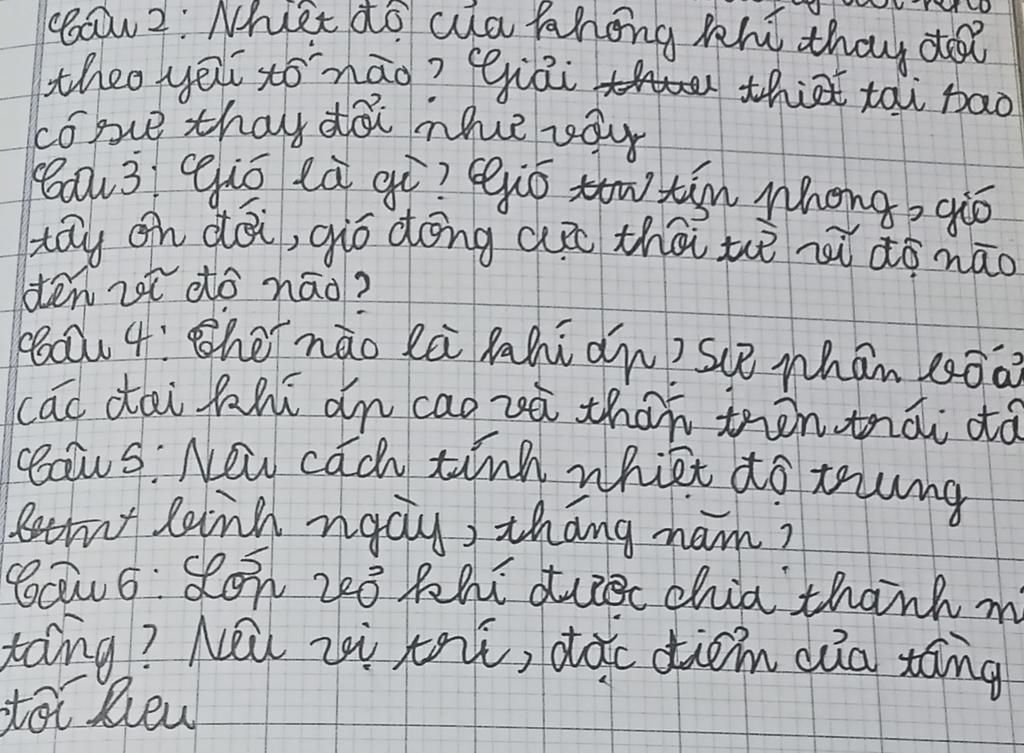 Câu 2: Nhiệt độ của không khí thay đổi
theo yếu tố nào? Giải thiết tại sao
có sự thay đổi như vậy
Câu 3: Gió là gì? Gió tín phong, gió
tây ôn đới, gió đông cực thổi từ vĩ độ nào
đến vĩ độ nào?
Câu 4: Thế nào là khí áp? Sự phân bố
các đai khí áp cao và thấp trên trái
Câu 5: Nêu cách tính nhiệt độ trung
bình ngày, tháng năm?
Câu 6: Lớp vỏ khí được chia thành
tầng? Nêu vị trí, đặc điểm của tầng
đối lưu